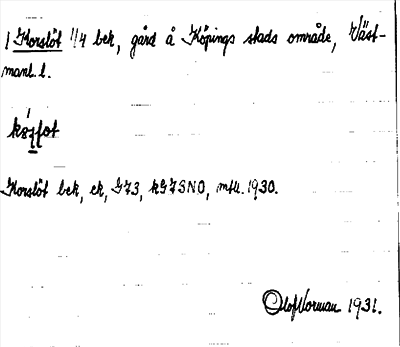 1 Korslöt 1/4 bek, gård å Köpings stads område, Väst-
manl. l.
Korslöt bek, ek, G73, kG7SNO, mtk. 1930.
Olof Norman 1931.